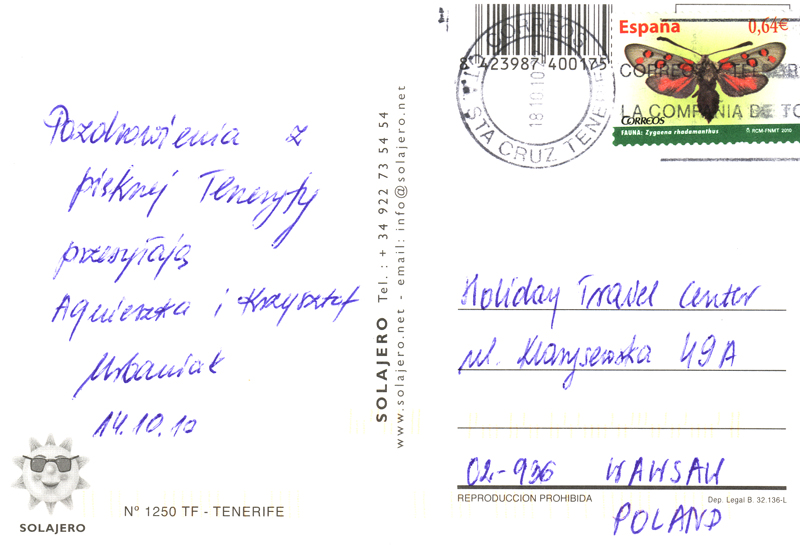 Pozdrowienia z
pięknej Teneryfy
przesyłają
Agnieszka i Krzysztof
Urbaniak
14.10.10
SOLAJERO
Nº 1250 TF - TENERIFE
SOLAJERO Tel.: + 34 922 73 54 54
www.solajero.net - email: info@solajero.net
8 423987 400175
CORREOS
18 10 10
STA CRUZ TENERIFE
España 0,64€
CORREOS TELE
LA COMPAÑIA DE TO
CORREOS
FAUNA: Zygaena rhadamanthus
RCM-FNMT 2010
Holiday Travel Center
ul. Klarysewska 49A
02-936 WARSAW
POLAND
REPRODUCCION PROHIBIDA
Dep. Legal B. 32.136-L